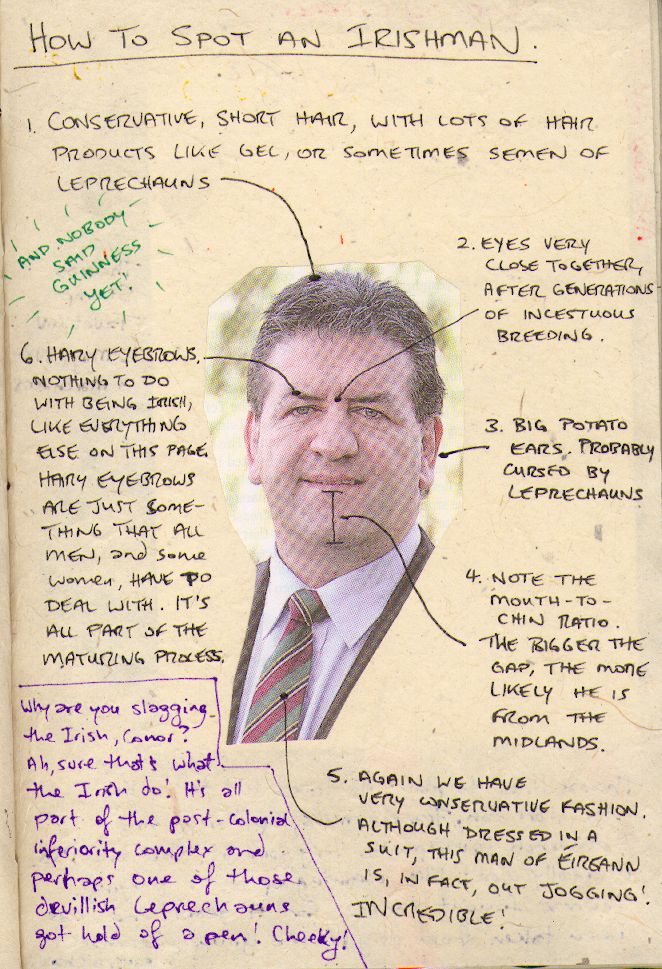 HOW TO SPOT AN IRISHMAN.
1. CONSERVATIVE, SHORT HAIR, WITH LOTS OF HAIR
PRODUCTS LIKE GEL, OR SOMETIMES SEMEN OF
LEPRECHAUNS
AND NOBODY
SAID
GUINNESS
YET!
2. EYES VERY
CLOSE TOGETHER,
AFTER GENERATIONS
OF INCESTUOUS
BREEDING.
3. BIG POTATO
EARS. PROBABLY
CURSED BY
LEPRECHAUNS
4. NOTE THE
MOUTH-TO-
CHIN RATIO.
THE BIGGER THE
GAP, THE MORE
LIKELY HE IS
FROM THE
MIDLANDS.
5. AGAIN WE HAVE
VERY CONSERVATIVE FASHION.
ALTHOUGH DRESSED IN A
SUIT, THIS MAN OF ÉIREANN
IS, IN FACT, OUT JOGGING!
INCREDIBLE!
6. HARY EYEBROWS.
NOTHING TO DO
WITH BEING IRISH,
LIKE EVERYTHING
ELSE ON THIS PAGE.
HARY EYEBROWS
ARE JUST SOME-
THING THAT ALL
MEN, and some
women, HAVE TO
DEAL WITH. IT'S
ALL PART OF THE
MATURING PROCESS.
Why are you slagging
the Irish, Conor?
Ah, sure that's what
the Irish do! It's all
part of the post-colonial
inferiority complex and
perhaps one of those
devillish leprechauns
got hold of a pen! Cheeky!